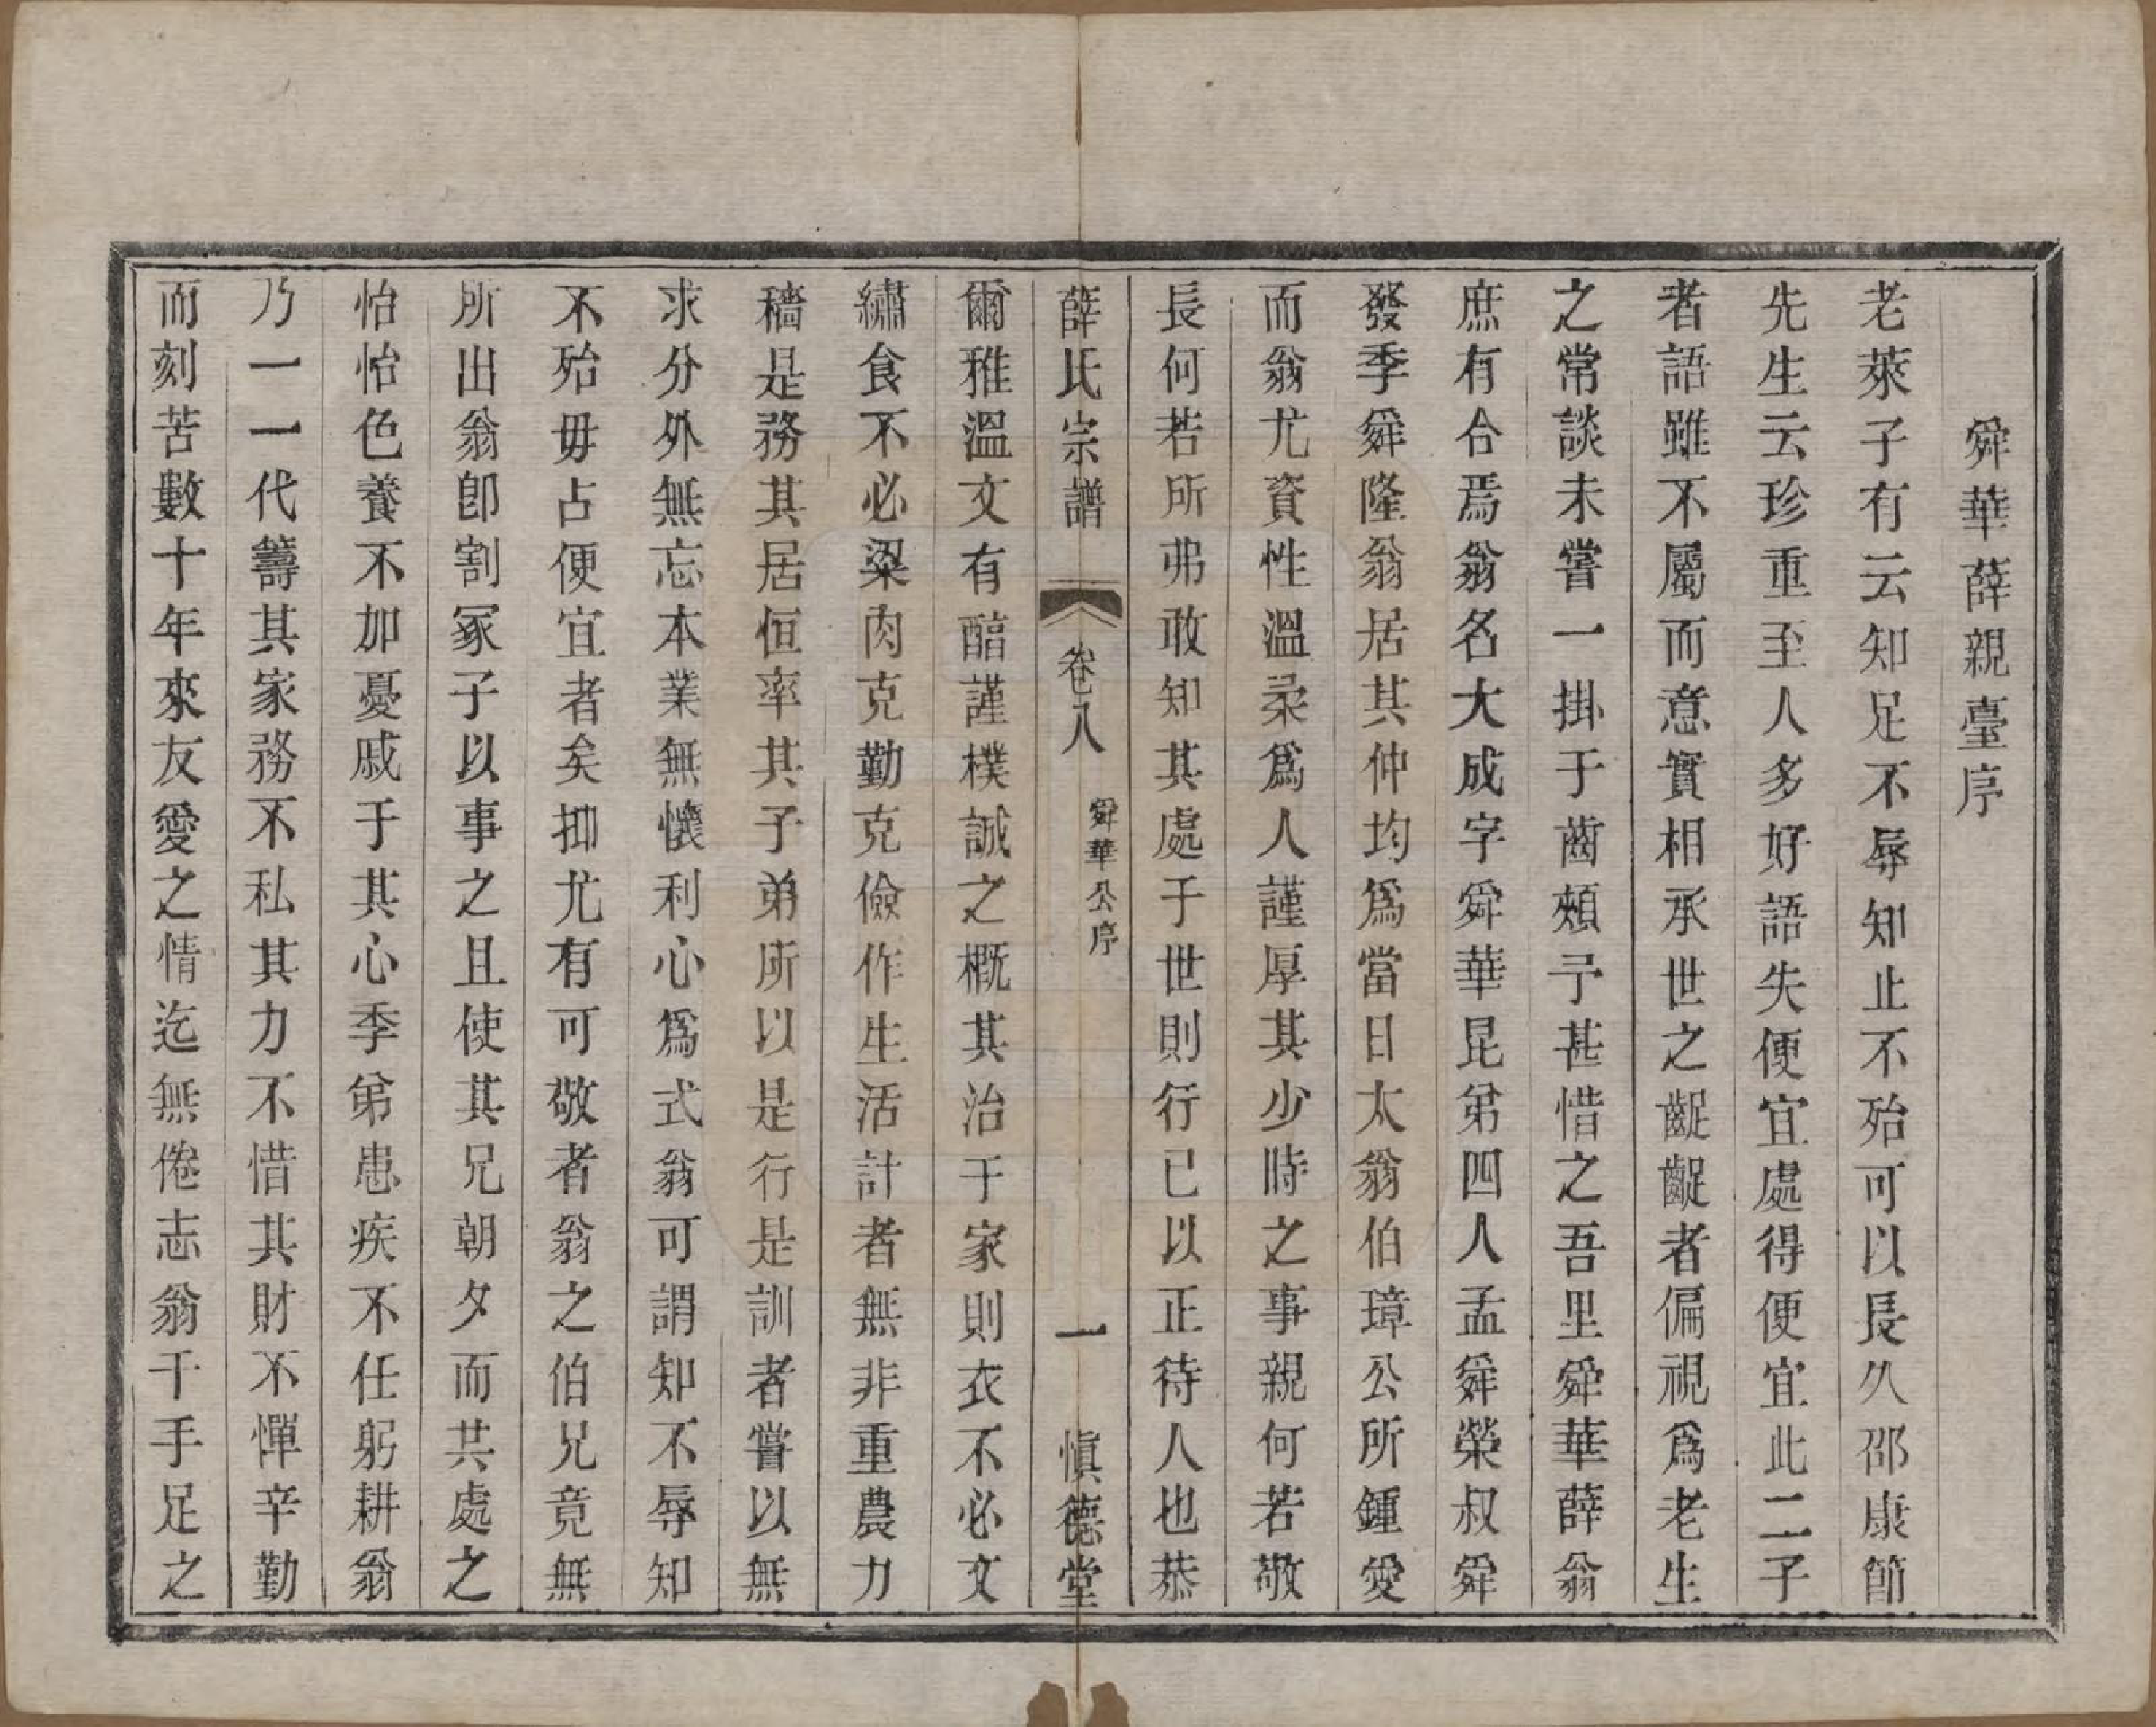 舜華薛親臺序
老萊子有云知足不辱知止不殆可以長久邵康節
先生云珍重至人多好語失便宜處得便宜此二子
者語雖不屬而意實相承世之齪齪者偏視爲老生
之常談未嘗一掛于齒頰予甚惜之吾里舜華薛翁
庶有合焉翁名大成字舜華昆弟四人孟舜榮叔舜
發季舜隆翁居其仲均爲當日太翁伯璋公所鍾愛
而翁尤資性溫柔爲人謹厚其少時之事親何若敬
長何若所弗敢知其處于世則行已以正待人也恭
薛氏宗譜 卷八 舜華公序 一 愼德堂
爾雅溫文有醕謹樸誠之概其治于家則衣不必文
繡食不必粱肉克勤克儉作生活計者無非重農力
穡是務其居恒率其子弟所以是行是訓者嘗以無
求分外無忘本業無懷利心爲式翁可謂知不辱知
不殆毋占便宜者矣抑尤有可敬者翁之伯兄竟無
所出翁卽割冢子以事之且使其兄朝夕而共處之
怡怡色養不加憂戚于其心季弟患疾不任躬耕翁
乃一一代籌其家務不私其力不惜其財不憚辛勤
而刻苦數十年來友愛之情迄無倦志翁于手足之